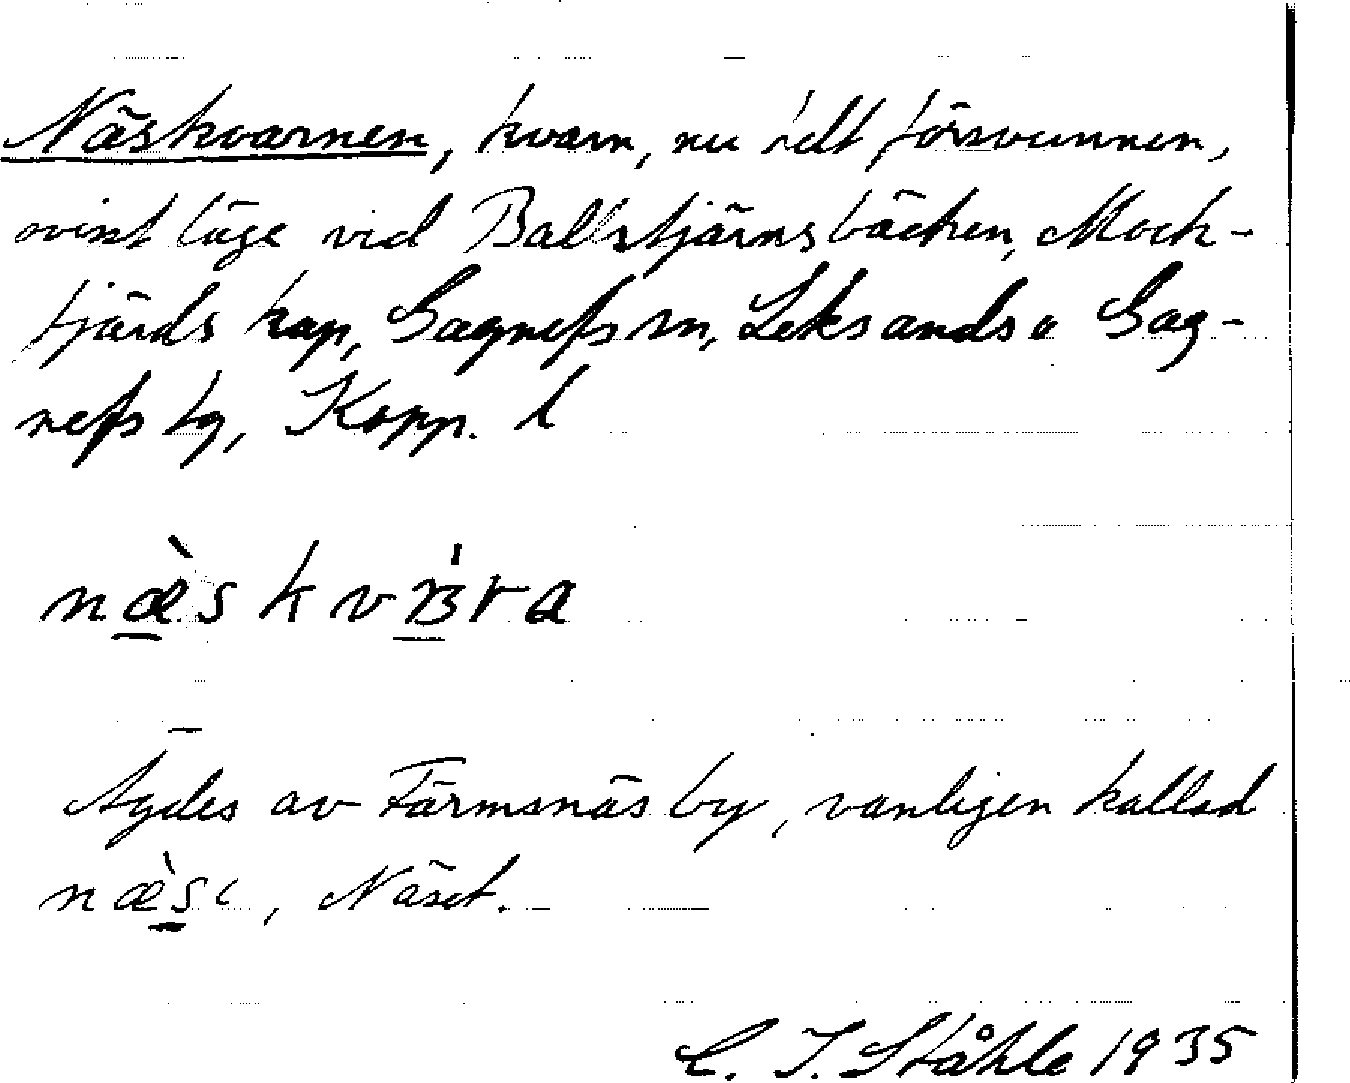 Näskvarnen, kvarn, nu helt försvunnen,
ovisst läge vid Ballstjärnsbäcken, Mock-
fjärds kap, Gagnefs sn, Leksands o Gag-
nefs tg, Kopp. l
Ägdes av Färmsnäs by, vanligen kallad
Näset.
C. I. Ståhle 1935